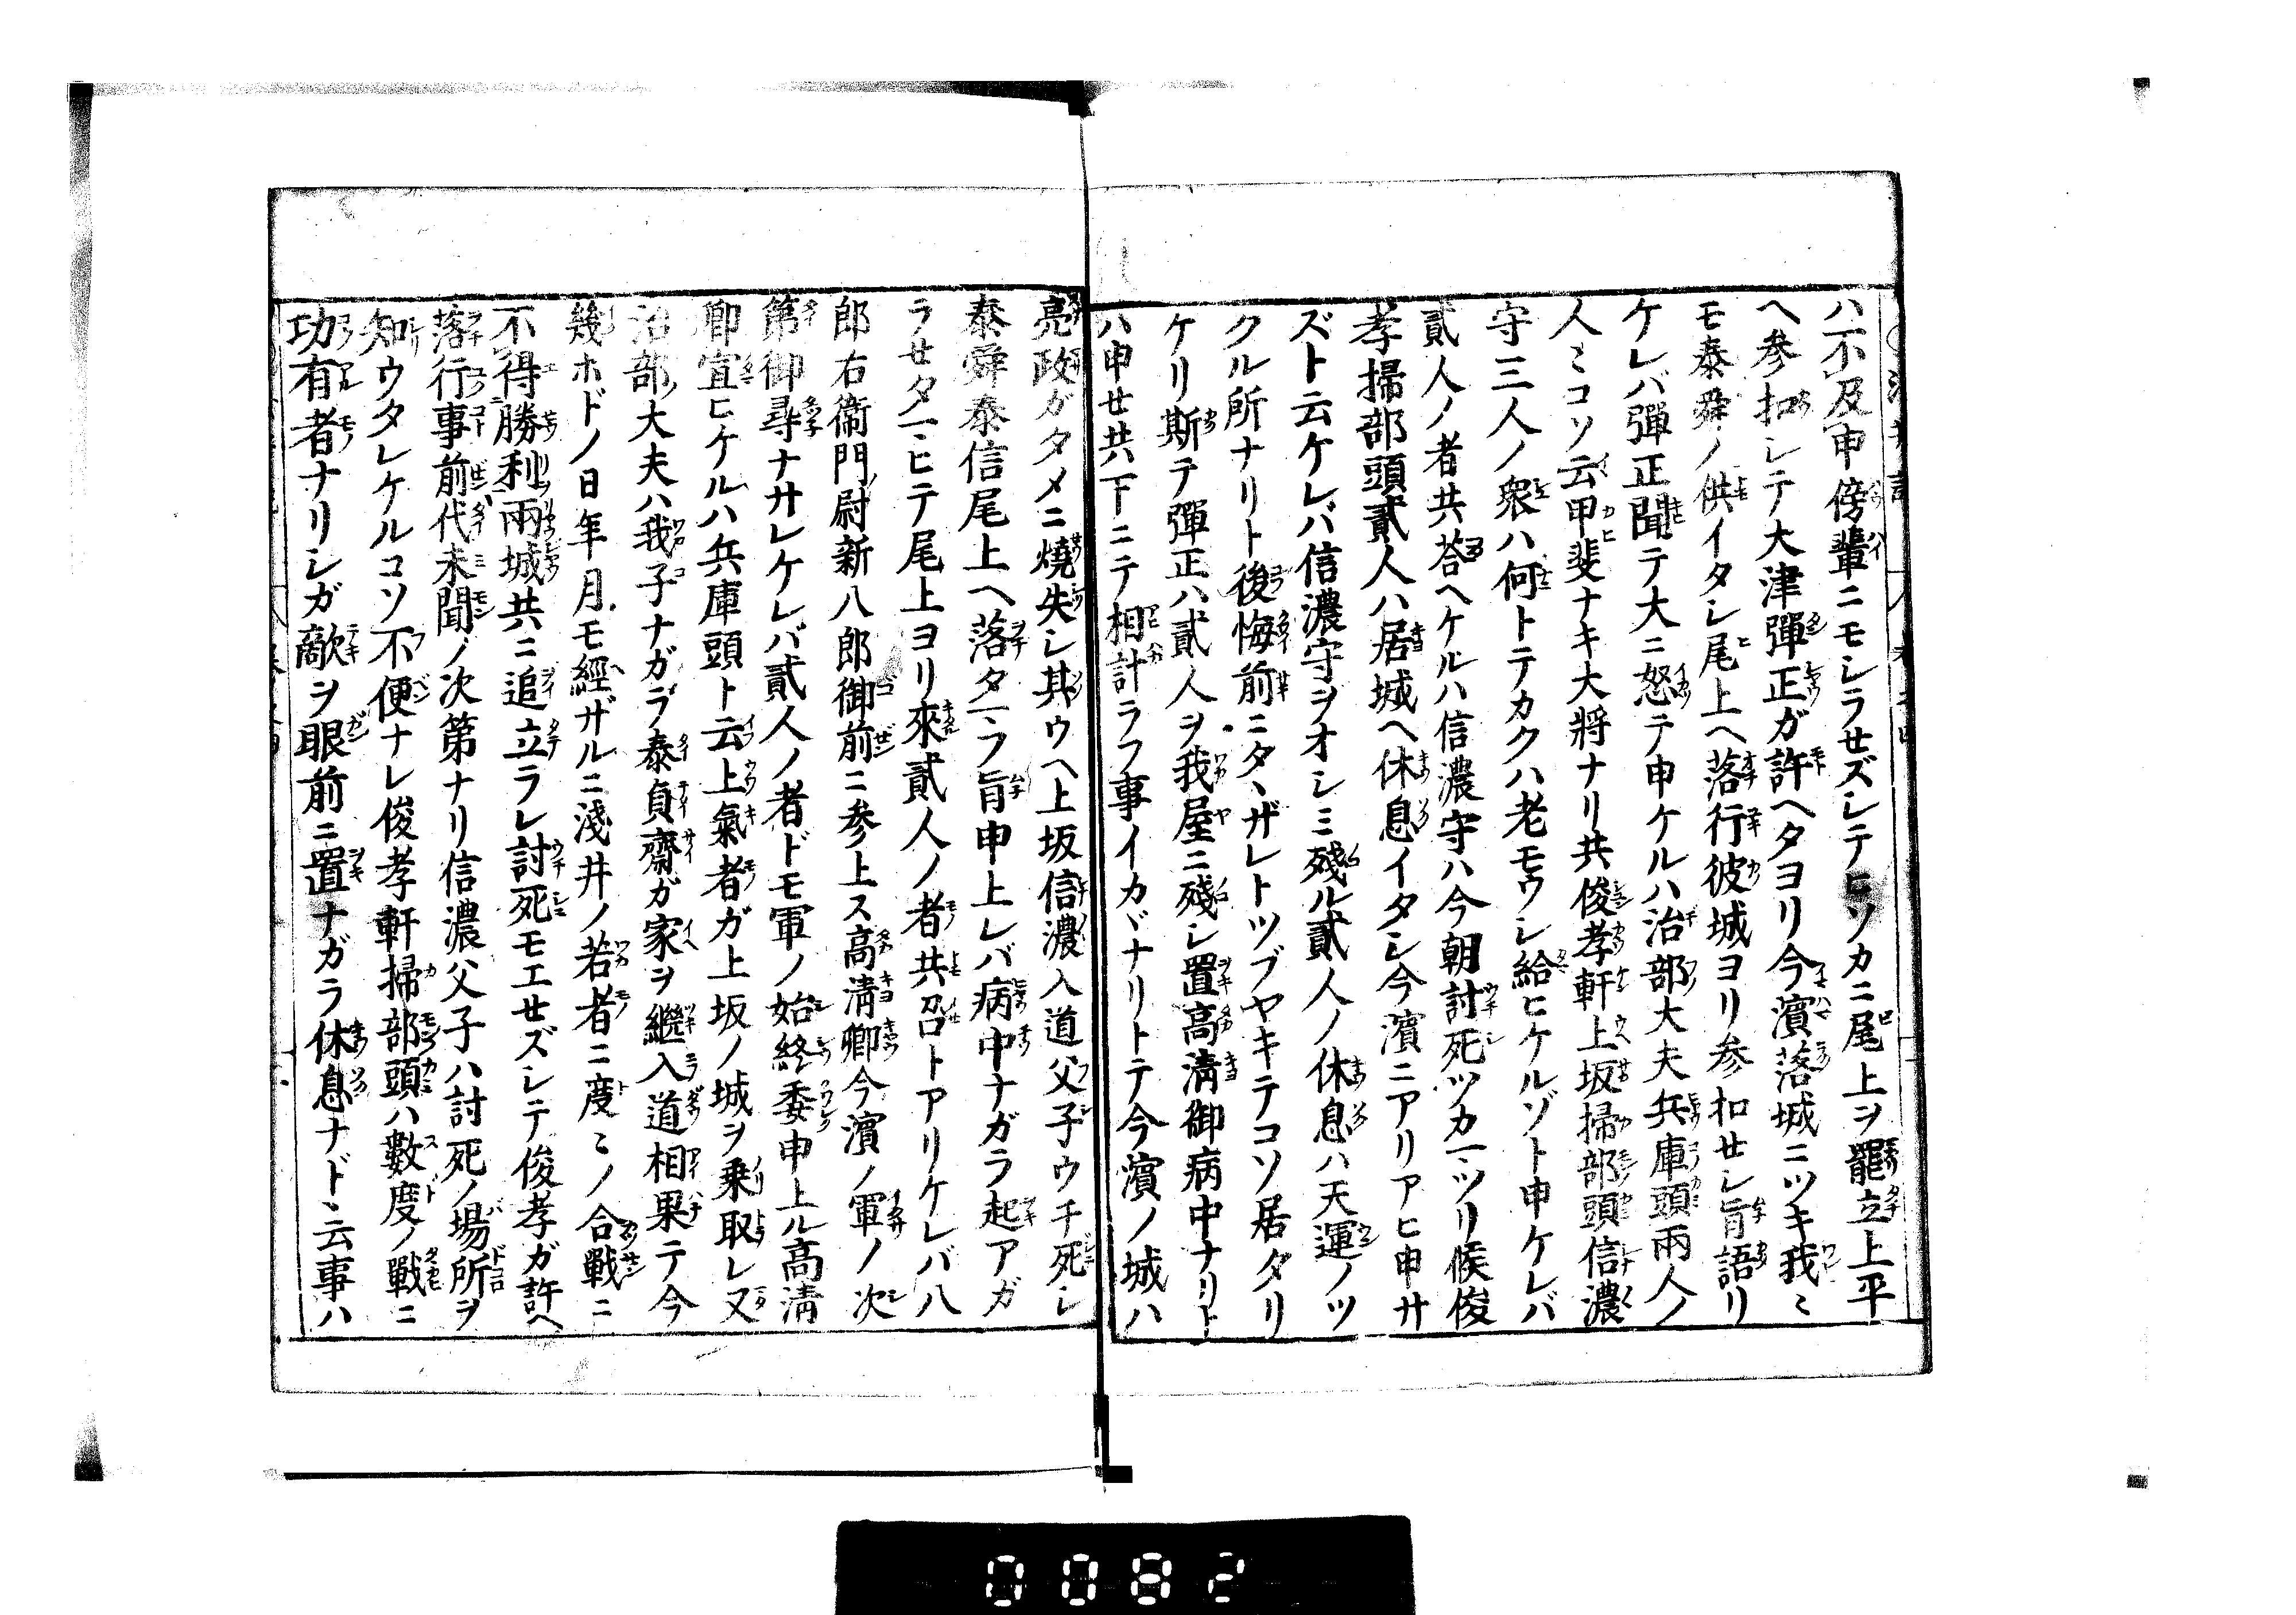 ハ不及申傍輩ニモシラセズシテヒソカニ尾上ヲ罷立上平
ヘ参扣シテ大津彈正ガ許ヘタヨリ今濱落城ニツキ我〻
モ泰舜ノ供イタシ尾上ヘ落行彼城ヨリ参扣セシ旨語リ
ケレバ彈正聞テ大ニ怒テ申ケルハ治部大夫兵庫頭兩人ノ
人〻コソ云甲斐ナキ大將ナリ共俊孝軒上坂掃部頭信濃
守三人ノ衆ハ何トテカクハ老モウシ給ヒケルゾト申ケレバ
貳人ノ者共荅ヘケルハ信濃守ハ今朝討死ツカマツリ候俊
孝掃部頭貳人ハ居城ヘ休息イタシ今濱ニアリアヒ申サ
ズト云ケレバ信濃守ヲオシミ残ル貳人ノ休息ハ天運ノツ
クル所ナリト後悔前ニタヽザレトツブヤキテコソ居タリ
ケリ斯テ彈正ハ貳人ヲ我屋ニ殘シ置高淸御病中ナリト
ハ申セ共下ニテ相計ラフ事イカヾナリトテ今濱ノ城ハ
亮政ガタメニ燒失シ其ウヘ上坂信濃入道父子ウチ死シ
泰舜泰信尾上ヘ落タマフ旨申上レバ病中ナガラ起アガ
ラセタマヒテ尾上ヨリ來貳人ノ者共召トアリケレバ八
郎右衞門尉新八郎御前ニ参上ス高淸卿今濱ノ軍ノ次
第御尋ナサレケレバ貳人ノ者ドモ軍ノ始終委申上ル高淸
卿宣ヒケルハ兵庫頭ト云上氣者ガ上坂ノ城ヲ乗取レ又
治部大夫ハ我子ナガラ泰貞齋ガ家ヲ繼入道相果テ今
幾ホドノ日年月モ經ザルニ淺井ノ若者ニ度〻ノ合戰ニ
不得勝利兩城共ニ追立ラレ討死モエセズシテ俊孝ガ許ヘ
落行事前代未聞ノ次第ナリ信濃父子ハ討死ノ場所ヲ
知ウタレケルコソ不便ナレ俊孝軒掃部頭ハ數度ノ戰ニ
功有者ナリシガ敵ヲ眼前ニ置ナガラ休息ナドヽ云事ハ
0082